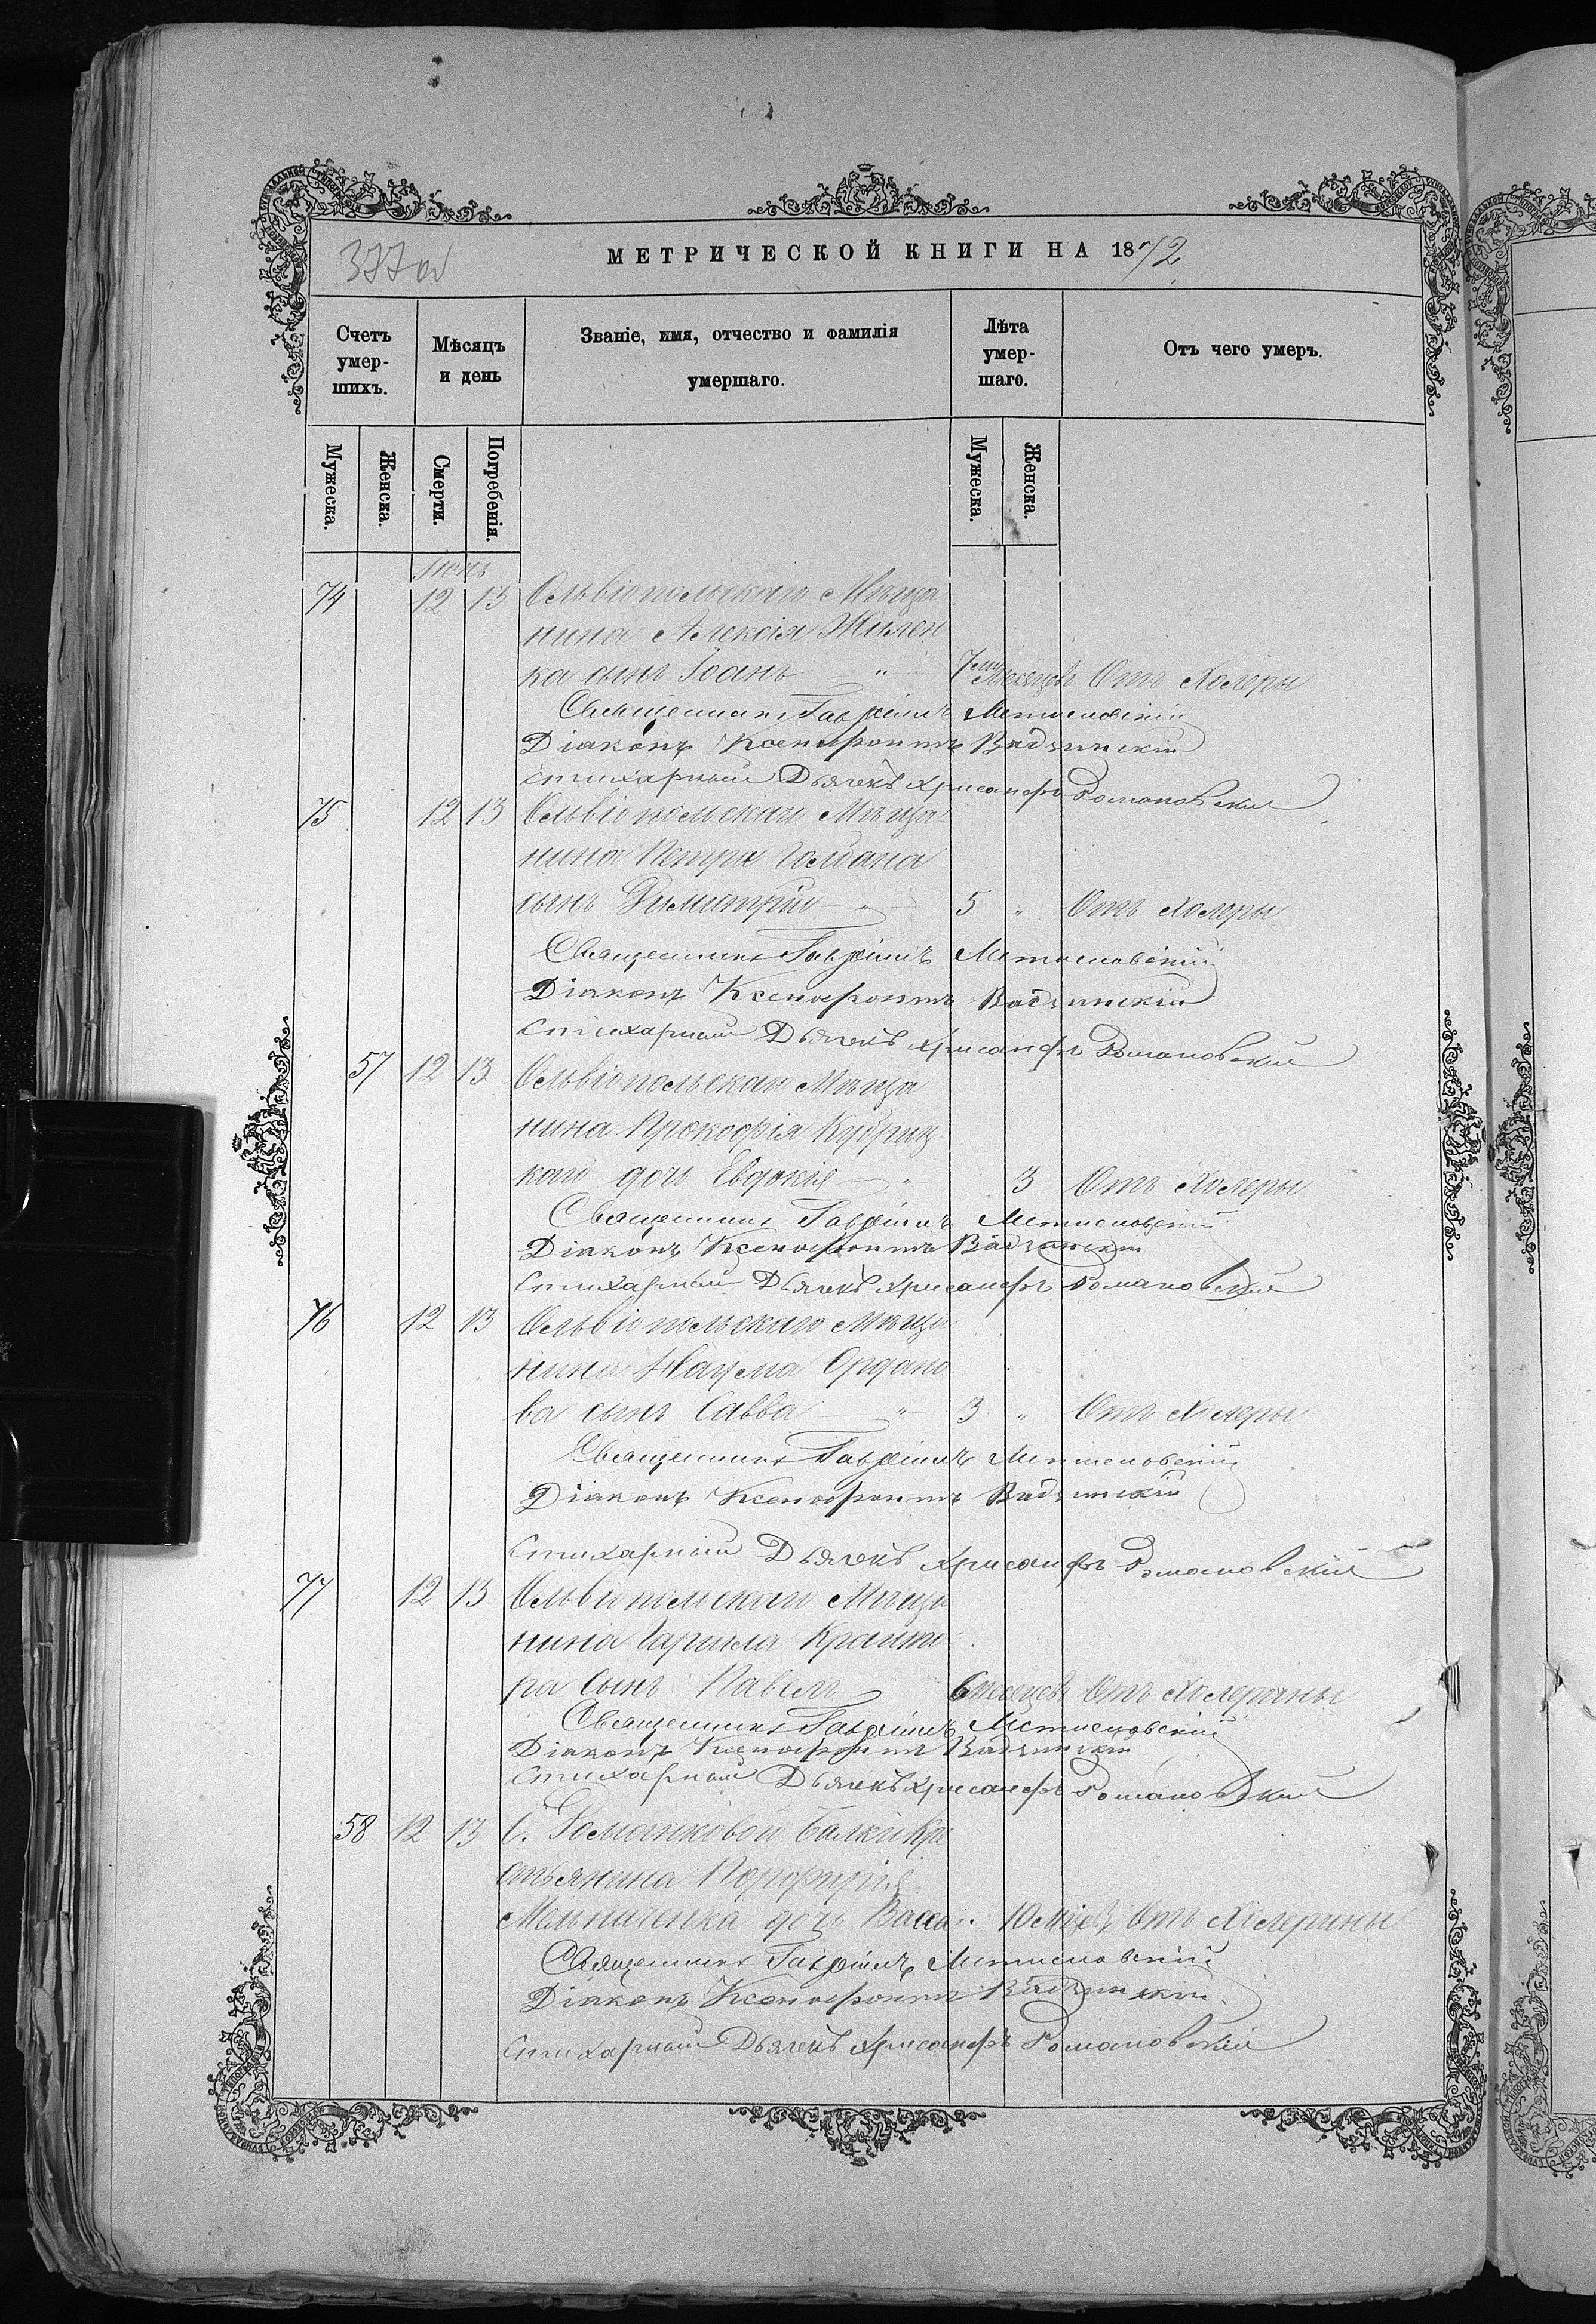 377 об
МЕТРИЧЕСКОЙ КНИГИ НА 1872
Счетъ умер-шихъ.
Мѣсяцъ и день
Званіе, имя, отчество и фамилія умершаго.
Лѣта умер-шаго.
Отъ чего умеръ.
Мужеска. Женска. Смерти. Погребенія. Мужеска. Женска.
Іюнь
74 12 13 Ольвіопольскаго Мѣща
нина Алексія Жилен
ка сынъ Іоанъ " 7ми Месяцевъ Отъ Холеры
Священникъ Гавріилъ Мстиславскій
Діаконъ Ксенофонтъ
Стихарный Дьячекъ Хрисанфъ Романовскій
75 12 13 Ольвіопольскаго Мѣща
нина Петра
сынъ Димитрій " 5 " Отъ Холеры
Священникъ Гавріилъ Мстиславскій
Діаконъ Ксенофонтъ
Стихарный Дьячекъ Хрисанфъ Романовскій
57 12 13 Ольвіопольскаго Мѣща
нина Прокофія Кубриц
каго дочь Евдокія " 3 Отъ Холеры
Священникъ Гавріилъ Мстиславскій
Діаконъ Ксенофонтъ
Стихарный Дьячекъ Хрисанфъ Романовскій
76 12 13 Ольвіопольскаго Мѣща
нина Наума Ордано
ва сынъ Савва " 3 " Отъ Холеры
Священникъ Гавріилъ Мстиславскій
Діаконъ Ксенофонтъ
Стихарный Дьячекъ Хрисанфъ Романовскій
77 12 13 Ольвіопольскаго Мѣща
нина
ра Сынъ Павелъ 6 месецевъ Отъ Холерины
Священникъ Гавріилъ Мстиславскій
Діаконъ Ксенофонтъ
Стихарный Дьячекъ Хрисанфъ Романовскій
58 12 13 С. Романковой Балки Кре
стьянина Порфирія
Мельниченка дочь Васса. 10 Отъ Холерины
Священникъ Гавріилъ Мстиславскій
Діаконъ Ксенофонтъ
Стихарный Дьячекъ Хрисанфъ Романовскій